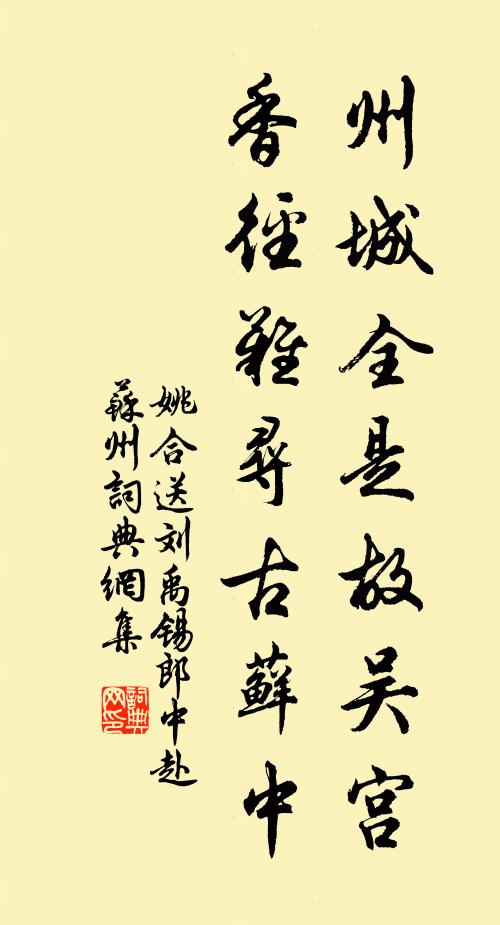 州城全是故吴宫
香径難尋古蘚中
姚合送刘禹锡郎中赴
蘇州詞典網集
詞典网印